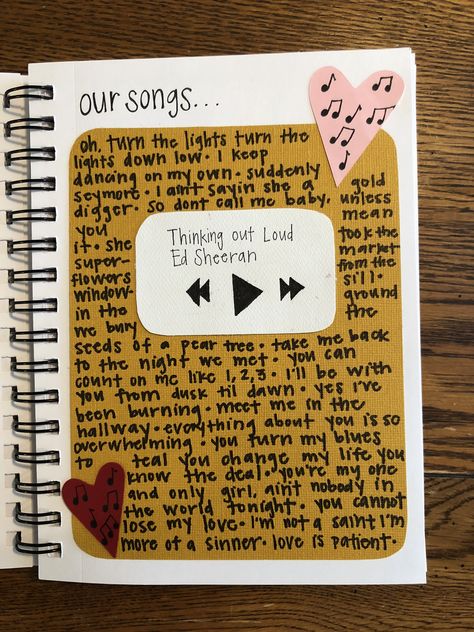 our songs...
oh, turn the lights turn the
lights down low · I keep
dancing on my own · suddenly
seymore · I aint sayin she a gold
digger · so dont call me baby, unless
you mean
it · she took the
super- market
flowers from the
window- sill ·
in tho ground
we bury the
Thinking out Loud
Ed Sheeran
seeds of a pear tree · take me back
to the night we met · you can
count on me like 1, 2, 3 · I'll be with
you from dusk til dawn · yes i've
been burning · meet me in the
hallway · everything about you is so
overwhelming · you turn my blues
to teal you change my life you
know the deal · you're my one
and only girl, aint nobody in
the world tonight · you cannot
lose my love · I'm not a saint I'm
more of a sinner · love is patient ·